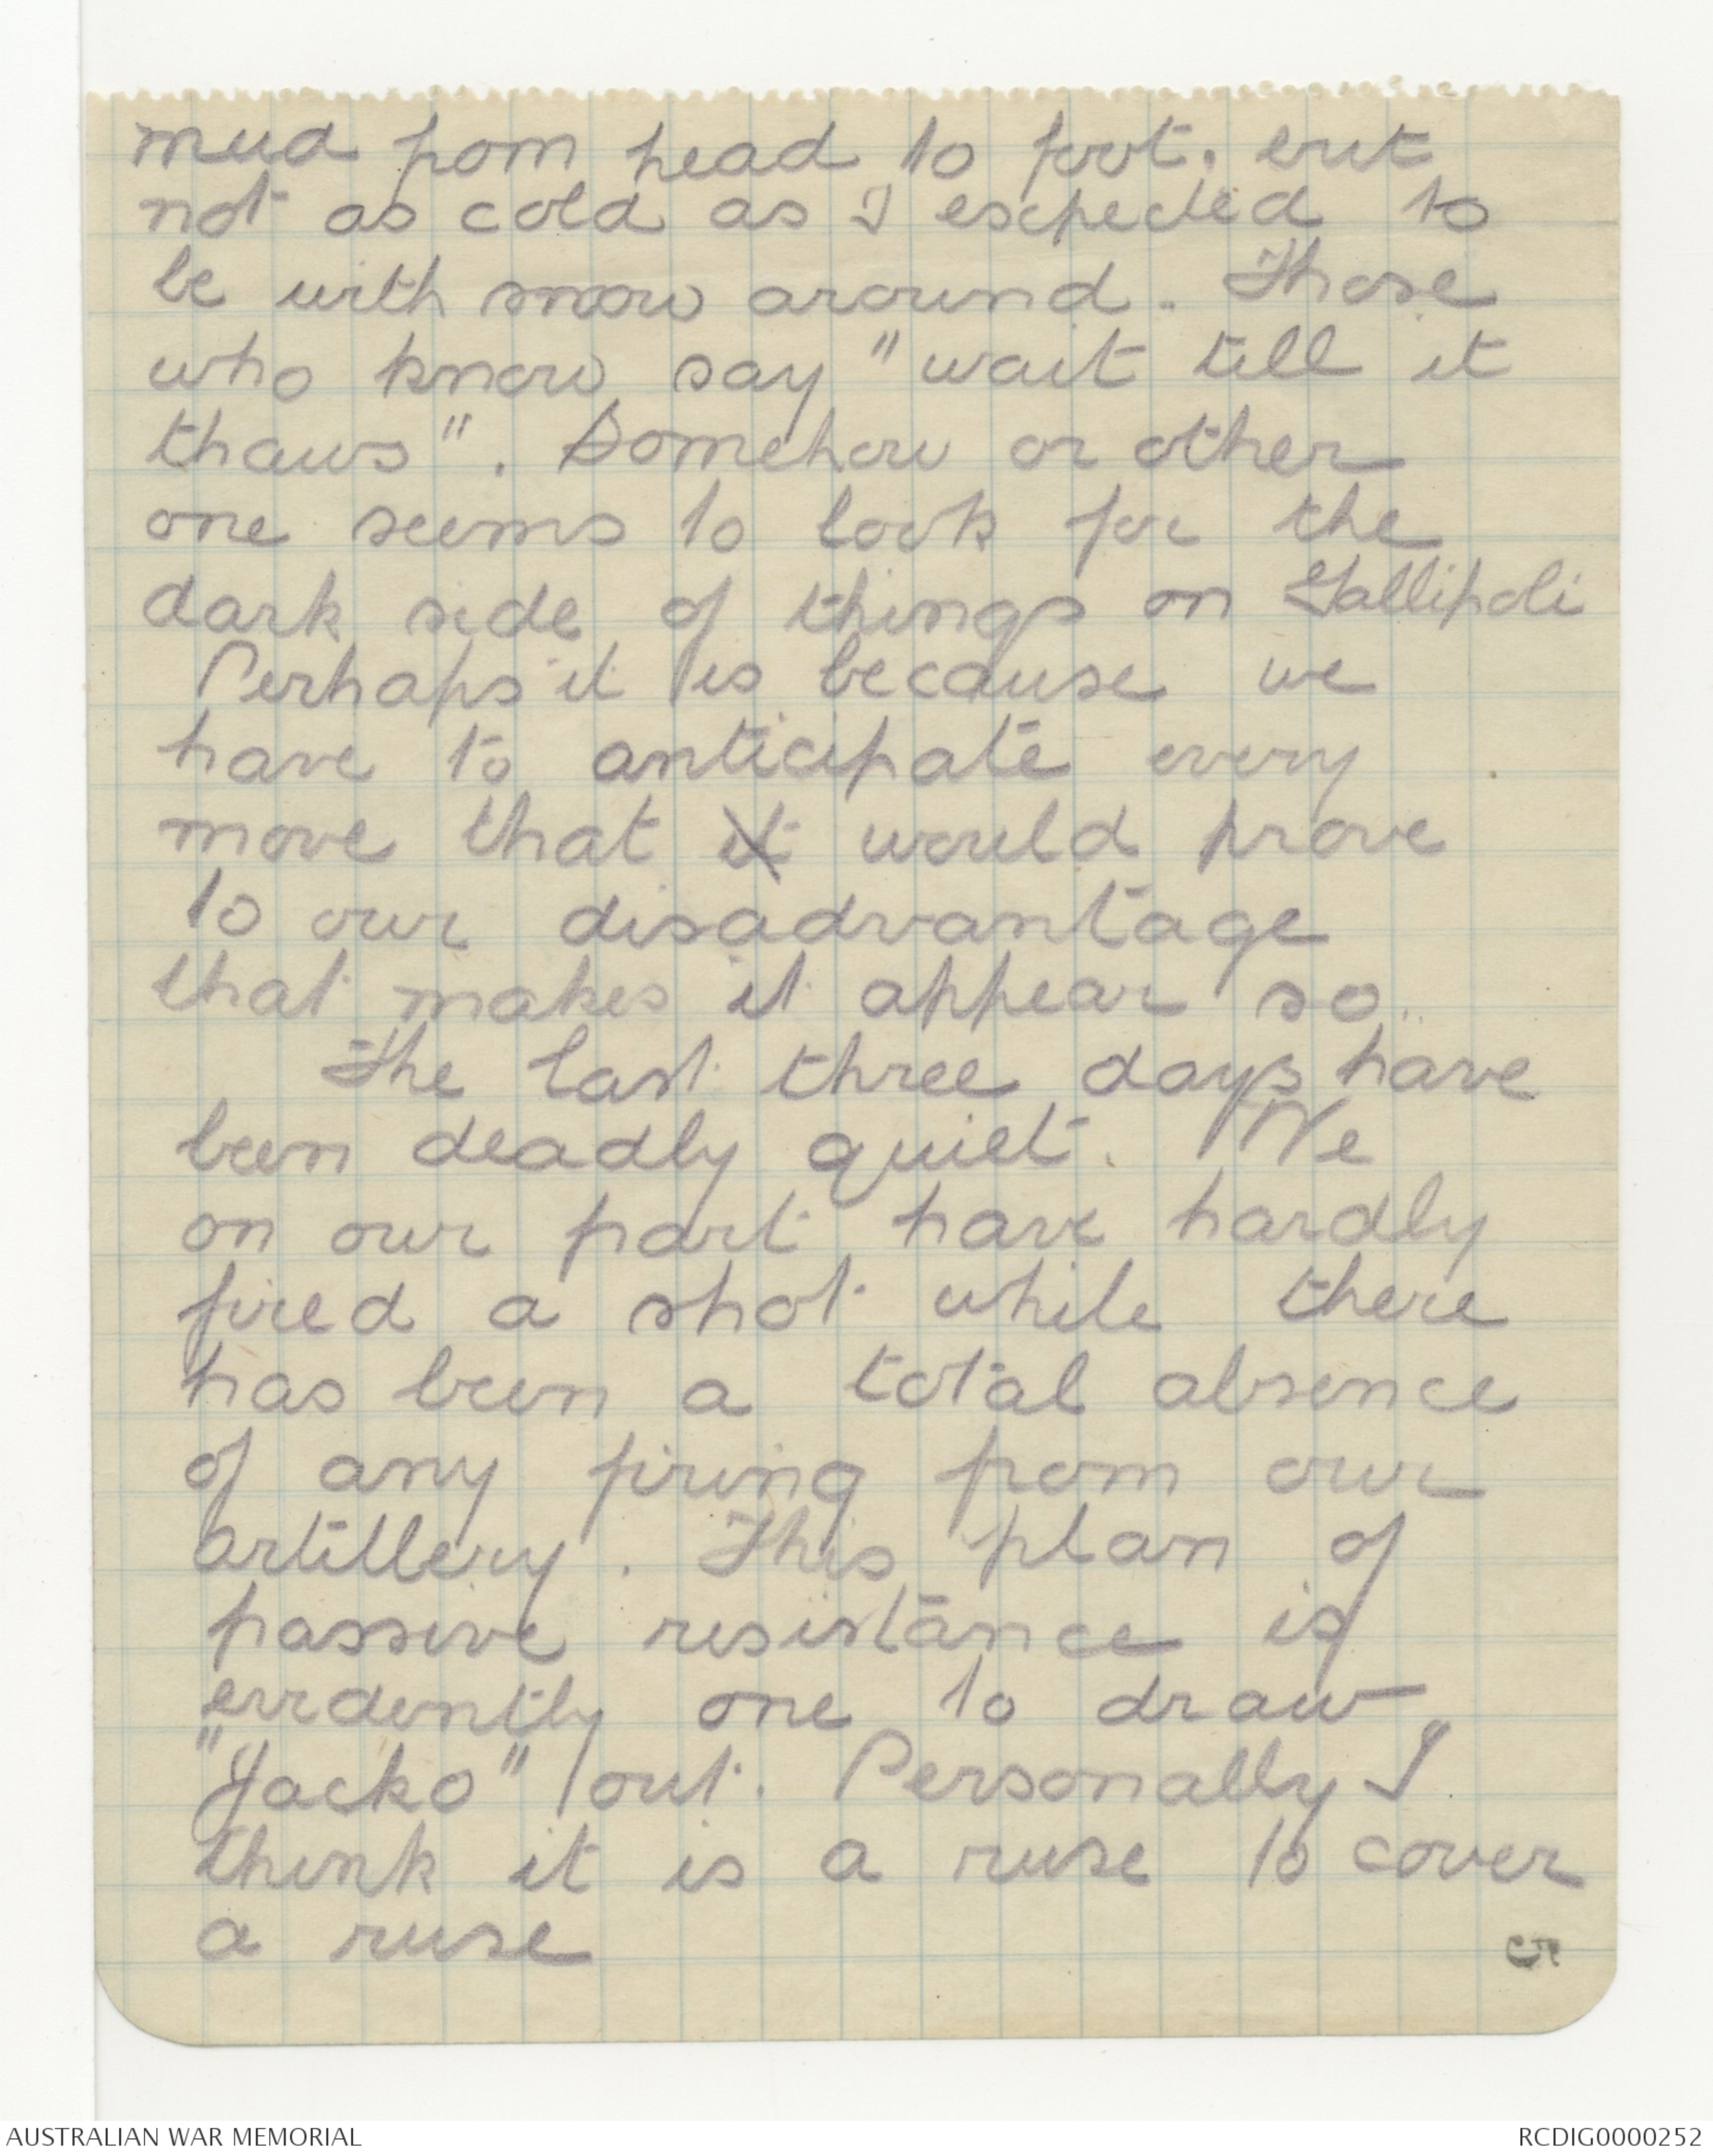 mud from head to foot. but
not as cold as I expected to
be with snow around. Those
who know say "wait till it
thaws". Somehow or other
one seems to look for the
dark side of things on Gallipoli
Perhaps it is because we
have to anticipate every
move that it would prove
to our disadvantage
that makes it appear so.
The last three days have
been deadly quiet. We
on our part have hardly
fired a shot while there
has been a total absence
of any firing from our
artillery. This plan of
passive resistance is
evidently one to draw
"Jacko" out. Personally I
think it is a ruse to cover
a ruse
AUSTRALIAN WAR MEMORIAL
RCDIG0000252